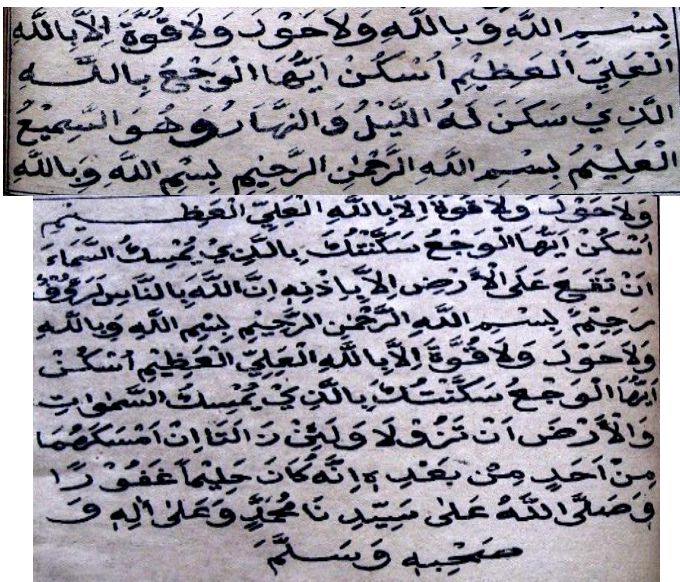 بِسْمِ اللّٰهِ وَبِاللّٰهِ وَلَا حَوْلَ وَلَا قُوَّةَ اِلَّا بِاللّٰهِ
الْعَلِيِّ الْعَظِيْمِ اُسْكُنْ اَيُّهَا الْوَجَعُ بِاللّٰهِ
الَّذِيْ سَكَنَ لَهُ اللَّيْلُ وَالنَّهَارُ وَهُوَ السَّمِيْعُ
الْعَلِيْمُ بِسْمِ اللّٰهِ الرَّحْمٰنِ الرَّحِيْمِ بِسْمِ اللّٰهِ وَبِاللّٰهِ
وَلَا حَوْلَ وَلَا قُوَّةَ اِلَّا بِاللّٰهِ الْعَلِيِّ الْعَظِيْمِ
اُسْكُنْ اَيُّهَا الْوَجَعُ سَكَّنْتُكَ بِالَّذِيْ يُمْسِكُ السَّمَاءَ
اَنْ تَقَعَ عَلَى الْاَرْضِ اِلَّا بِاِذْنِهٖ اِنَّ اللّٰهَ بِالنَّاسِ لَرَؤُفٌ
رَحِيْمٌ بِسْمِ اللّٰهِ الرَّحْمٰنِ الرَّحِيْمِ بِسْمِ اللّٰهِ وَبِاللّٰهِ
وَلَا حَوْلَ وَلَا قُوَّةَ اِلَّا بِاللّٰهِ الْعَلِيِّ الْعَظِيْمِ اُسْكُنْ
اَيُّهَا الْوَجَعُ سَكَّنْتُكَ بِالَّذِيْ يُمْسِكُ السَّمٰوَاتِ
وَالْاَرْضَ اَنْ تَزُوْلَا وَلَئِنْ زَالَتَا اِنْ اَمْسَكَهُمَا
مِنْ اَحَدٍ مِنْ بَعْدِهٖ اِنَّهٗ كَانَ حَلِيْمًا غَفُوْرًا
وَصَلَّى اللّٰهُ عَلٰى سَيِّدِنَا مُحَمَّدٍ وَعَلٰى اٰلِهٖ وَ
صَحْبِهٖ وَسَلَّمَ